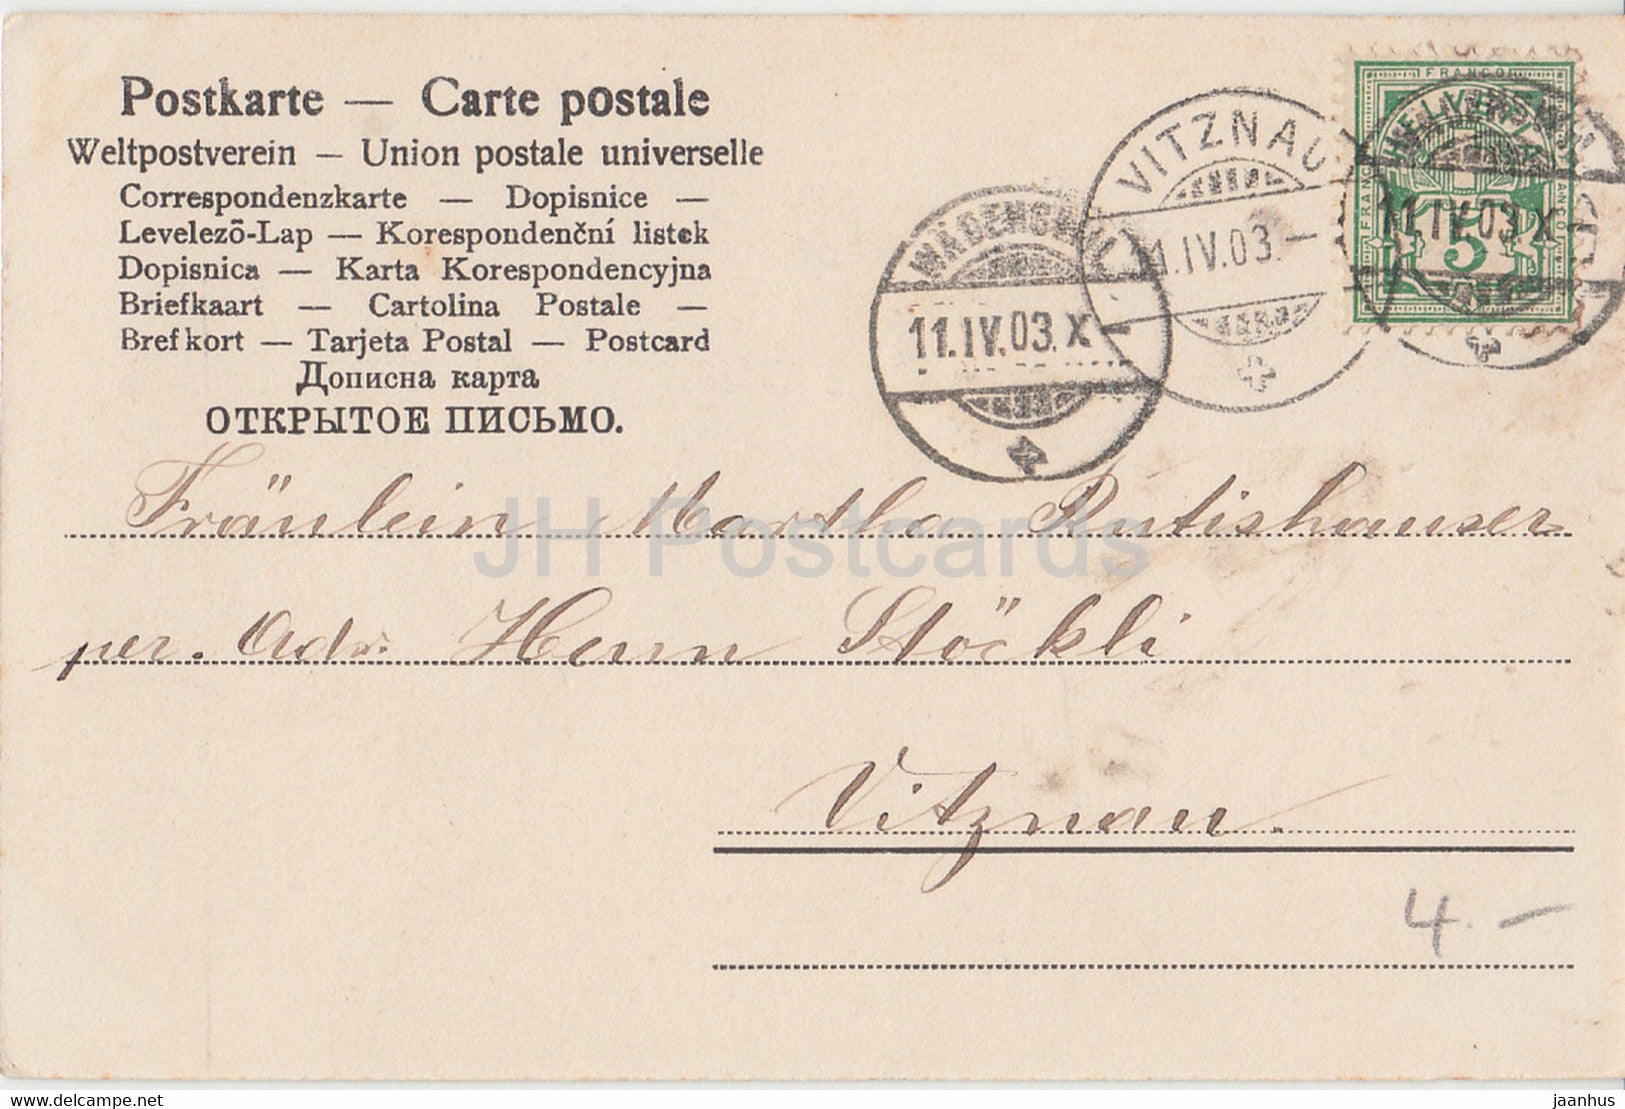 Postkarte — Carte postale
Weltpostverein — Union postale universelle
Correspondenzkarte — Dopisnice —
Levelezõ-Lap — Korespondenční listek
Dopisnica — Karta Korespondencyjna
Briefkaart — Cartolina Postale —
Brefkort — Tarjeta Postal — Postcard
Дописна карта
ОТКРЫТОЕ ПИСЬМО.
VITZNAU
11.IV.03.–
WÄDENSWIL
11.IV.03.X–
FRANCO
HELVETIA
5
11.IV.03 X
Fräulein Martha Rutishauser
per. Adr. Herrn Stöckli
Vitznau.
4.–
JH Postcards
delcampe.net
jaanhus